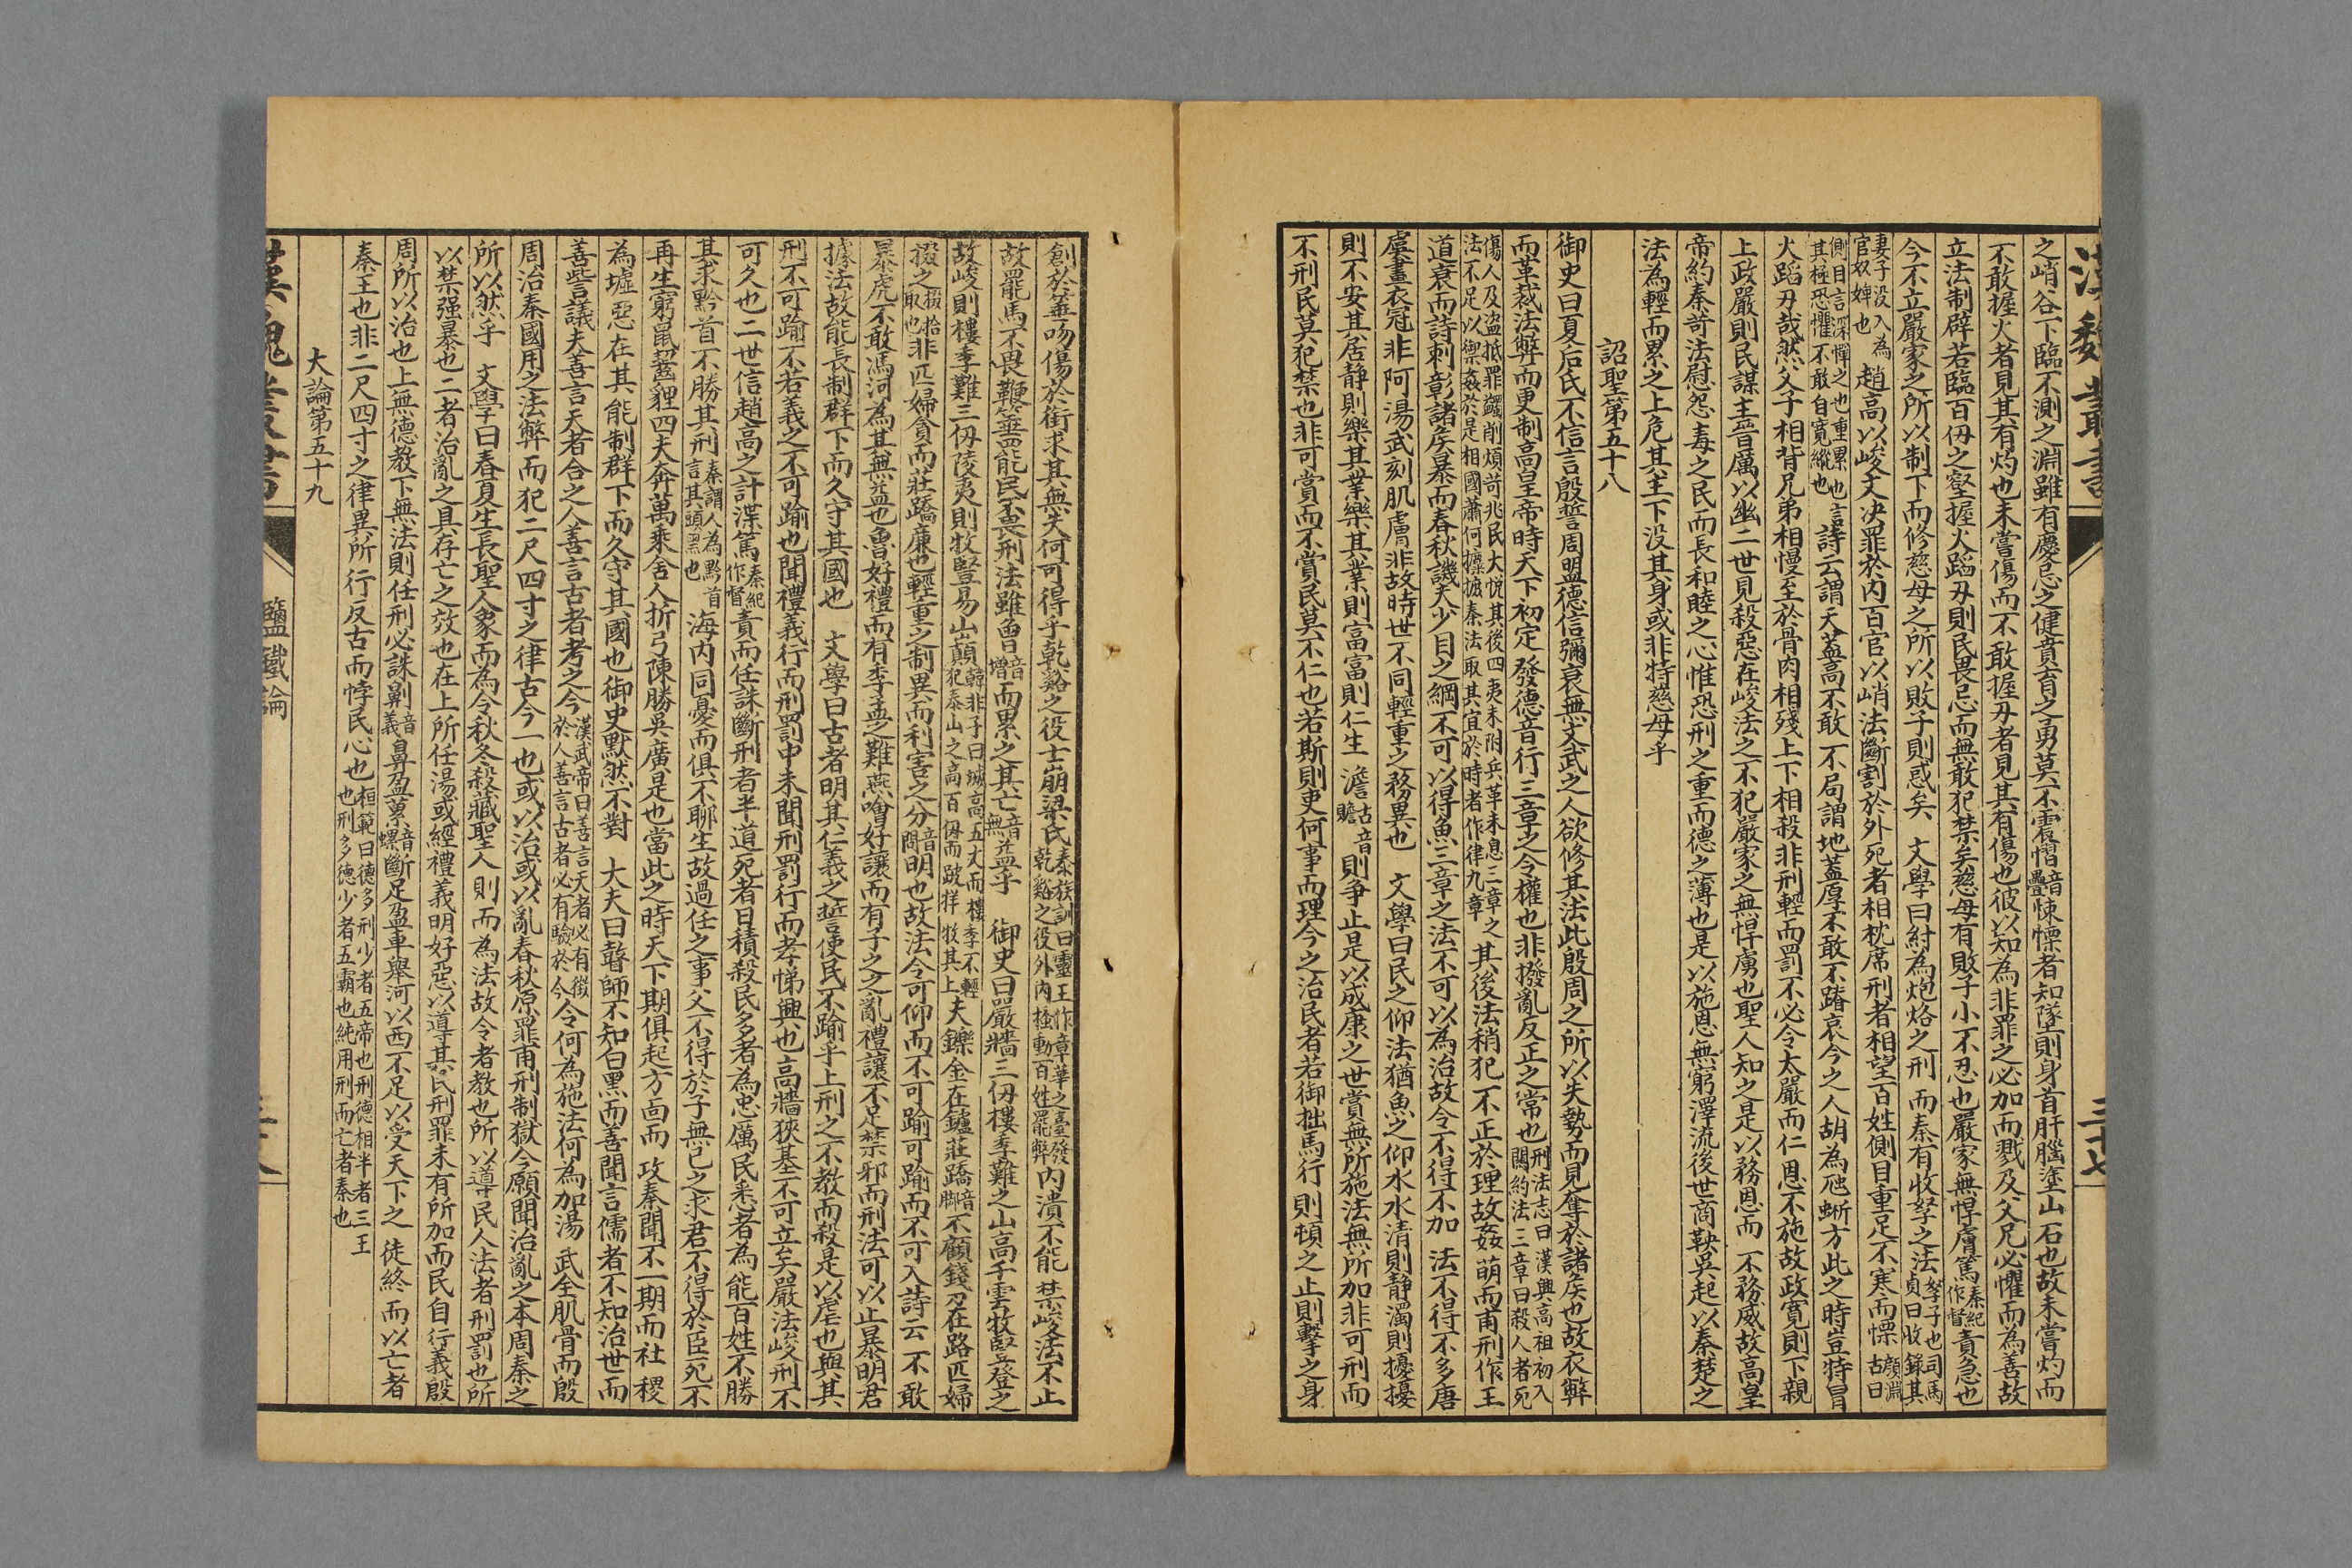 漢魏叢書
之峭谷下臨不測之淵雖有慶忌之健賁育之勇莫不震慴音疊悚慄者知墜則身首肝腦塗山石也故未嘗灼而
不敢握火者見其有灼也未嘗傷而不敢握刃者見其有傷也彼以知為非罪之必加而戮及父兄必懼而為善故
立法制辟若臨百仞之壑握火蹈刃則民畏忌而無敢犯禁矣慈母有敗子小不忍也嚴家無悍虜篤秦紀作督責急也
今不立嚴家之所以制下而修慈母之所以敗子則惑矣　文學曰紂為炮烙之刑而秦有收孥之法孥子也司馬貞曰收錄其
妻子沒入為官奴婢也趙高以峻文決罪於內百官以峭法斷割於外死者相枕席刑者相望百姓側目重足不寒而慄顏淵古曰
側目言深憚之也重累也言其極恐懼不敢自寬縱也詩云謂天蓋高不敢不局謂地蓋厚不敢不蹐哀今之人胡為虺蜥方此之時豈特冒
火蹈刃哉然父子相背兄弟相慢至於骨肉相殘上下相殺非刑輕而罰不必令太嚴而仁恩不施故政寬則下親
上政嚴則民謀主晉厲以幽二世見殺惡在峻法之不犯嚴家之無悍虜也聖人知之是以務恩而不務威故高皇
帝約秦苛法慰怨毒之民而長和睦之心惟恐刑之重而德之薄也是以施恩無窮澤流後世商鞅吳起以秦楚之
法為輕而累之上危其主下沒其身或非特慈母乎
詔聖第五十八
御史曰夏后氏不信言殷誓周盟德信彌衰無文武之人欲修其法此殷周之所以失勢而見奪於諸侯也故衣弊
而革裁法弊而更制高皇帝時天下初定發德音行三章之令權也非撥亂反正之常也刑法志曰漢興高祖初入關約法三章曰殺人者死
傷人及盜抵罪蠲削煩苛兆民大悅其後四夷未附兵革未息三章之法不足以禦姦於是相國蕭何攈摭秦法取其宜於時者作律九章其後法稍犯不正於理故姦萌而甫刑作王
道衰而詩刺彰諸侯暴而春秋譏夫少目之網不可以得魚三章之法不可以為治故令不得不加法不得不多唐
虞畫衣冠非阿湯武刻肌膚非故時世不同輕重之務異也　文學曰民之仰法猶魚之仰水水清則靜濁則擾擾
則不安其居靜則樂其業樂其業則富富則仁生澹古音贍則争止是以成康之世賞無所施法無所加非可刑而
不刑民莫犯禁也非可賞而不賞民莫不仁也若斯則吏何事而理今之治民者若御拙馬行則頓之止則擊之身
創於箠吻傷於銜求其無失何可得乎乾谿之役士崩梁氏秦族訓曰靈王作章華之臺發乾谿之役外內搔動百姓罷弊內潰不能禁峻法不止
故罷馬不畏鞭箠罷民不畏刑法雖曾音增而累之其亡音無益乎　御史曰嚴牆三仞樓季難之山高千雲牧豎登之
故峻則樓季難三仞陵夷則牧豎易山巔韓非子曰城高五丈而樓季不輕犯泰山之高百仞而跛牂牧其上夫鑠金在鑪莊蹻音腳不顧錢刀在路匹婦
掇之掇拾取也非匹婦貪而莊蹻廉也輕重之制異而利害之分音問明也故法令可仰而不可踰可踰而不可入詩云不敢
暴虎不敢馮河為其無益也魯好禮而有季孟之難燕噲好讓而有子之之亂禮讓不足禁邪而刑法可以止暴明君
據法故能長制群下而久守其國也　文學曰古者明其仁義之誓使民不踰乎上刑之不教而殺是以虐也與其
刑不可踰不若義之不可踰也聞禮義行而刑罰中未聞刑罰行而孝悌興也高牆狹基不可立矣嚴法峻刑不
可久也二世信趙高之計渫篤秦紀作督責而任誅斷刑者半道死者日積殺民多者為忠厲民悉者為能百姓不勝
其求黔首不勝其刑秦謂人為黔首言其頭黑也海內同憂而俱不聊生故過任之事父不得於子無已之求君不得於臣死不
再生窮鼠齧貍四夫奔萬乘舍人折弓陳勝吳廣是也當此之時天下期俱起方面而攻秦聞不一期而社稷
為墟惡在其能制群下而久守其國也御史默然不對　大夫曰瞽師不知白黑而善聞言儒者不知治世而
善訾議夫善言天者合之人善言古者考之今漢武帝曰善言天者必有徵於人善言古者必有驗於今令何為施法何為加湯武全肌骨而殷
周治秦國用之法弊而犯二尺四寸之律古今一也或以治或以亂春秋原罪甫刑制獄今願聞治亂之本周秦之
所以然乎　文學曰春夏生長聖人象而為令秋冬殺藏聖人則而為法故令者教也所以導民人法者刑罰也所
以禁强暴也二者治亂之具存亡之效也在上所任湯或經禮義明好惡以導其民刑罪未有所加而民自行義殷
周所以治也上無德教下無法則任刑必誅劓音義鼻盈蔂音螺斷足盈車舉河以西不足以受天下之徒終而以亡者
秦王也非二尺四寸之律異所行反古而悖民心也桓範曰德多刑少者五帝也刑德相半者三王也刑多德少者五霸也純用刑而亡者秦也
大論第五十九
漢魏叢書
鹽鐵論